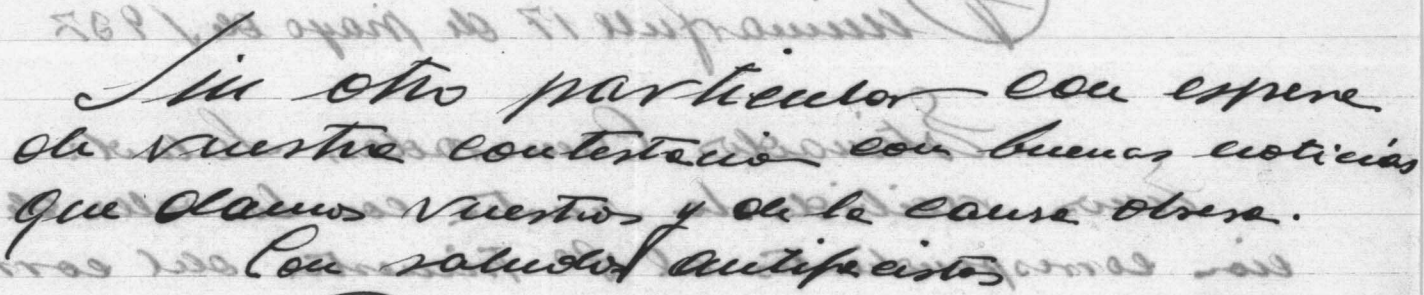 Sin otro particular con espera
de vuestra contestacion con buenas noticias
que damos vuestros y de la causa obrera.
Con saludos antifacistas